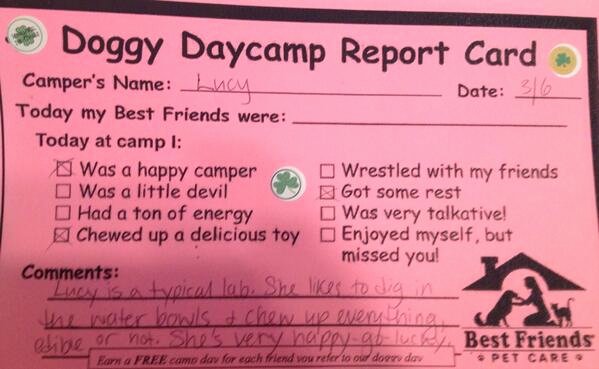 Doggy Daycamp Report Card
Camper's Name: Lucy Date: 3/6
Today my Best Friends were:
Today at camp I:
Was a happy camper
Was a little devil
Had a ton of energy
Chewed up a delicious toy
Wrestled with my friends
Got some rest
Was very talkative!
Enjoyed myself, but
missed you!
Comments:
Lucy is a typical lab. She likes to dig in
the water bowls & chew up everything,
edible or not. She's very happy-go-lucky.
Earn a FREE camp day for each friend you refer to our doggy day
Best Friends
PET CARE